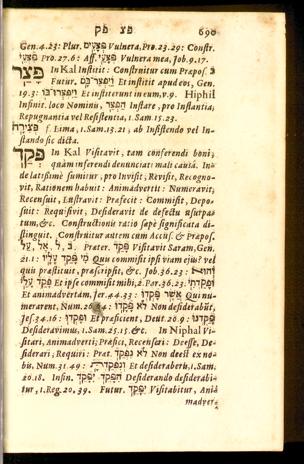 פצ פק 690
Gen.4.23: Plur. פְּצָעִים Vulnera, Pro.23.29: Constr.
פִּצְעֵי Pro.27.6: Aff. פְּצָעַי Vulnera mea, Job.9.17.
פָּצַר In Kal Institit: Construitur cum Præpos. בּ
Futur. וַיִּפְצַר־בָּם Et institit apud eos, Gen.
19.3: וַיִּפְצְרוּ־בוֹ Et institerunt in eum, v.9. Hiphil
Infinit. loco Nominis, הַפְצַר Instare, pro Instantia;
Repugnantia vel Resistentia, 1. Sam.15.23.
פְּצִירָה f. Lima, 1. Sam.13.21, ab Insistendo vel In-
stando sic dicta.
פָּקַד In Kal Visitavit, tam conferendi boni,
quàm inferendi denunciati mali causâ. In-
de latissimè sumitur, pro Invisit, Revisit, Recogno-
vit, Rationem habuit: Animadvertit: Numeravit,
Recensuit, Lustravit: Præfecit: Commisit, Depo-
suit: Requisivit, Desideravit de defectu usurpa-
tum, &c. Constructionis ratio sæpè significata di-
stinguit. Construitur autem cum Accus. & Præpos.
בּ, ל, אֶל, עַל. Præter. פָּקַד Visitavit Saram, Gen.
21.1: מִי פָקַד עָלָיו Quis commisit ipsi viam ejus? vel
quis præstituit, præscripsit, &c. Job.36.23:
פָּקַד עָלַי Et ipse commisit mihi, 2. Par.36.23: וּפָקַדְתִּי
Et animadvertam, Jer.44.13: אֲשֶׁר פָּקְדוּ Qui nu-
merarent, Num. לֹא פָקְדוּ Non desiderabũt,
Jes.34.16: וּפָקְדוּ Et præficient, Deut.20.9: פָּקַדְנוּ
Desideravimus, 1. Sam.25.15. &c. In Niphal Vi-
sitari, Animadverti; Præfici, Recenseri: Deesse, De-
siderari; Requiri: Præt. לֹא נִפְקַד Non deest ex no-
bis, Num.31.49: וְנִפְקַדְתָּ Et desideraberis, 1. Sam.
20.18. Infin. הִפָּקֵד יִפָּקֵד Desiderando desiderabi-
tur, 1. Reg.20.39. Futur. יִפָּקֵד Visitabitur, Ani-
madver-